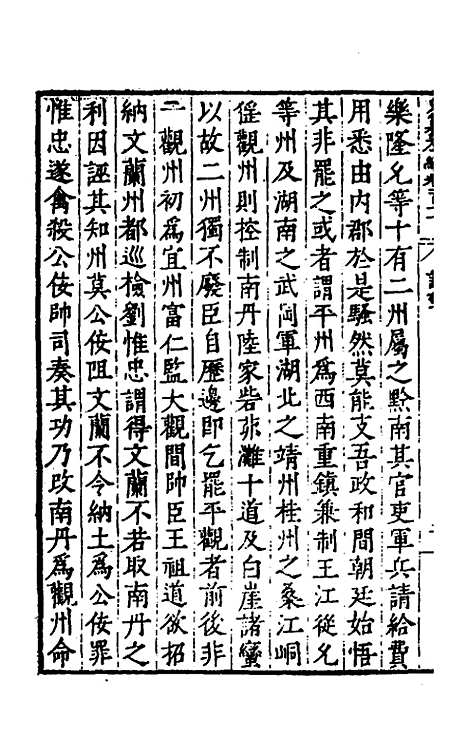 樂隆兊等十有二州屬之黔南其官吏軍兵請給費
用悉由内郡於是騷然莫能支吾政和間朝廷始悟
其非罷之或者謂平州爲西南重鎮兼制王江從允
等州及湖南之武岡軍湖北之靖州桂州之桑江峒
徭觀州則控制南丹陸家砦茆灘十道及白崖諸蠻
以故二州獨不廢臣自歷邊即乞罷平觀者前後非
一觀州初爲宜州富仁監大觀間帥臣王祖道欲招
納文蘭州都巡檢劉惟忠謂得文蘭不若取南丹之
利因誣其知州莫公佞阻文蘭不令納土爲公佞罪
惟忠遂禽殺公佞帥司奏其功乃改南丹爲觀州命